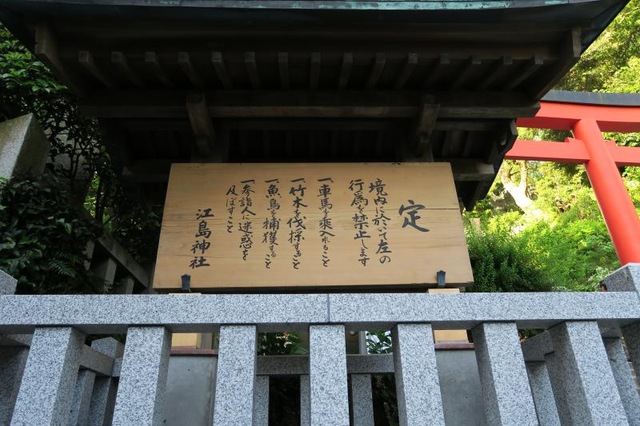 定
境内に於いて左の
行為を禁止します
一、車馬を乗入れること
一、竹木を伐採すること
一、魚鳥を捕獲すること
一、参詣人に迷惑を
及ぼすこと
江島神社